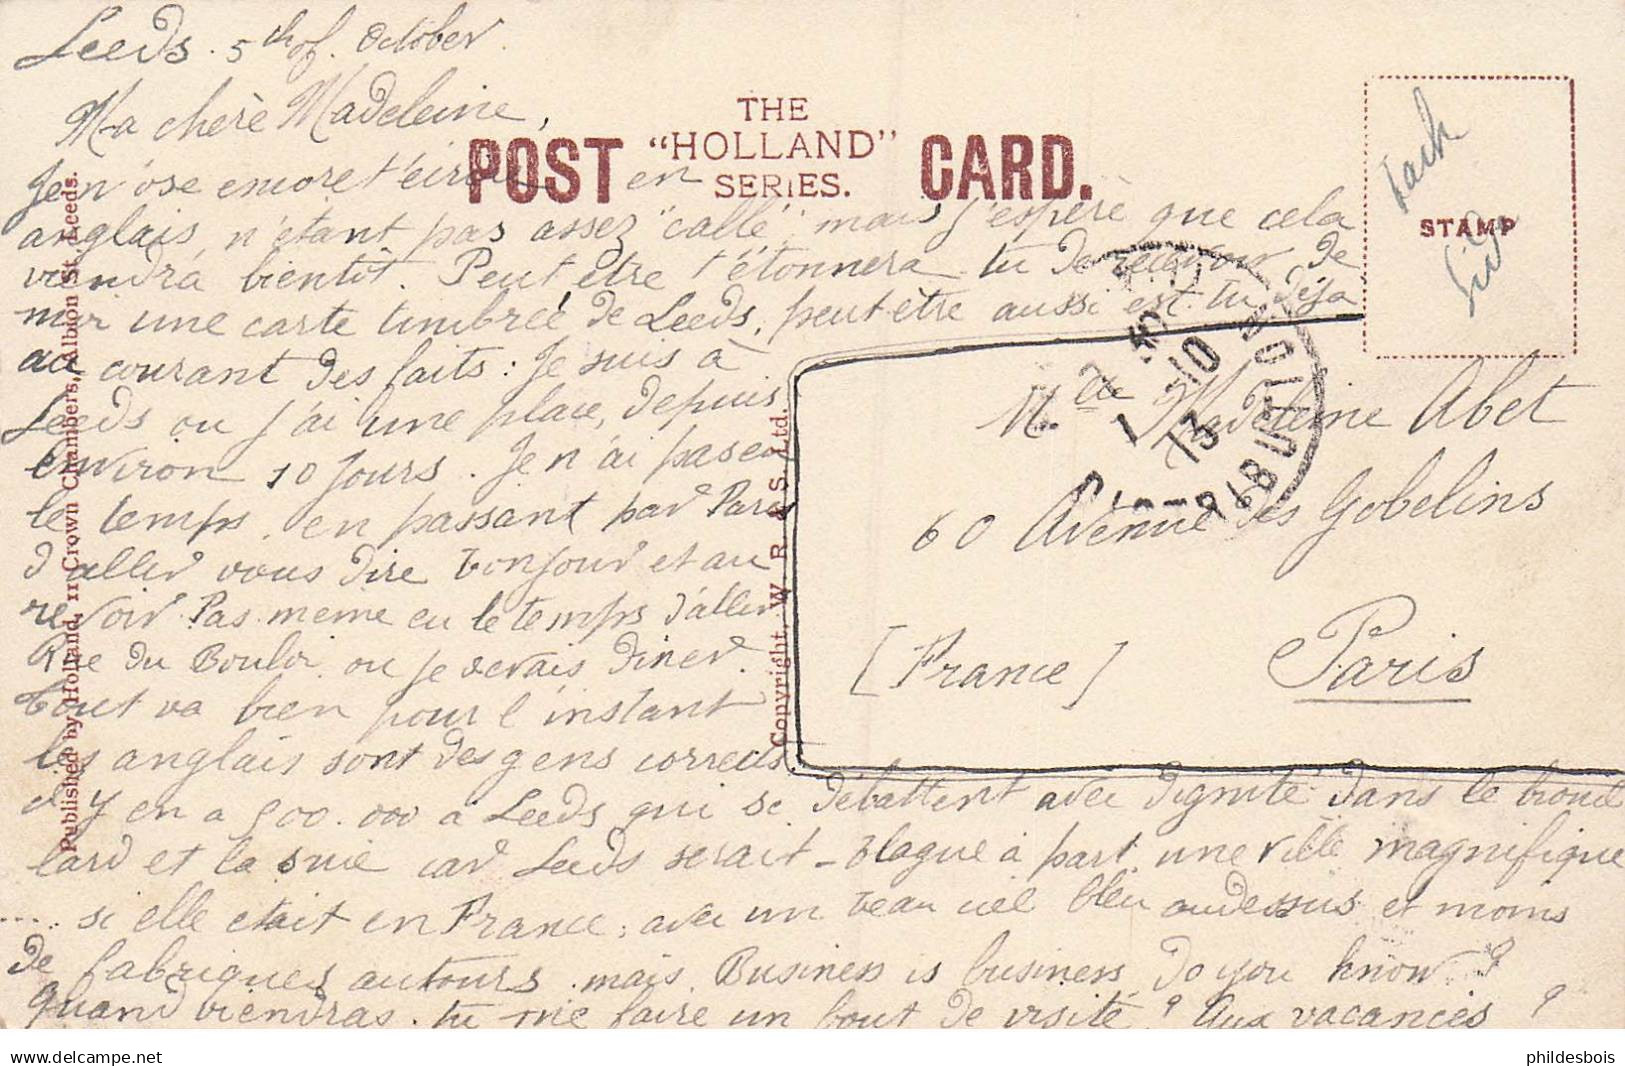 Leeds . 5th of. October.
Ma chère Madeleine,
THE
POST "HOLLAND" CARD.
SERIES.
STAMP
Je n'ose encore t'écrire en
anglais, n'étant pas assez "callé", mais j'espère que cela
viendra bientôt. Peut être t'étonnera tu de recevoir de
moi une carte timbrée de Leeds, peut être aussi est tu déja
au courant des faits : Je suis à
Leeds ou j'ai une place, depuis
environ 10 jours. Je n'ai pas eu
le temps, en passant par Paris
d'aller vous dire bonjour et au
revoir. Pas meme eu le temps d'aller
Rue du Bouloi ou je devais diner.
Tout va bien pour l'instant
les anglais sont des gens corrects
il y en a 500.000 à Leeds qui se débattent avec dignité dans le brouil
lard et la suie car Leeds serait - blague à part, une ville magnifique
.... si elle etait en France, avec un beau ciel bleu au dessus et moins
de fabriques autours. mais Business is business do you know ?
quand viendras. tu me faire un bout de visite ? Aux vacances ?
Mlle Madeleine Abet
60 Avenue des Gobelins
[France] Paris
DISTRIBUTION
10
13
Published by Holland, 11 Crown Chambers, Albion St. Leeds.
Copyright. W. R. & S. Ltd.
phildesbois